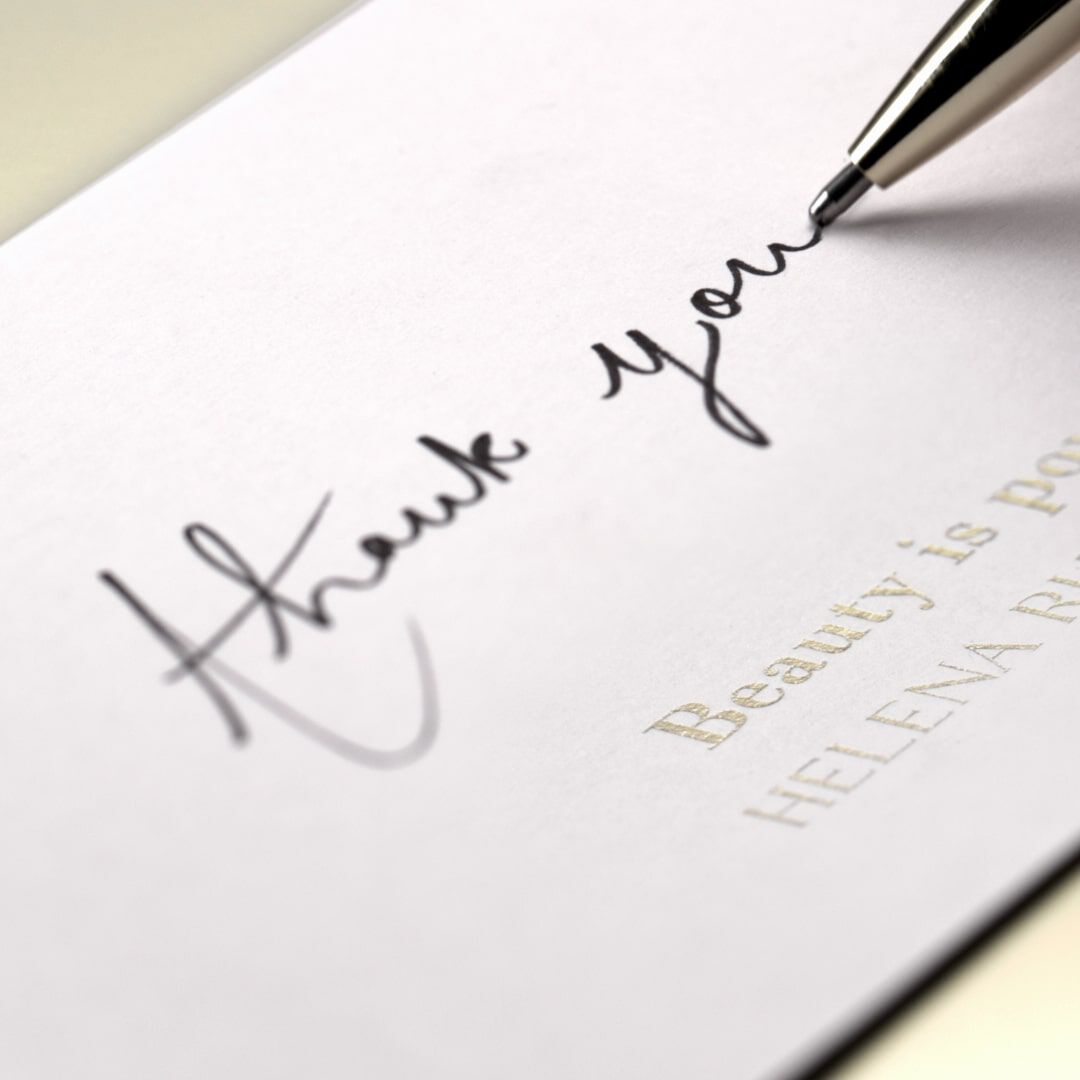 thank you
Beauty is
HELENA